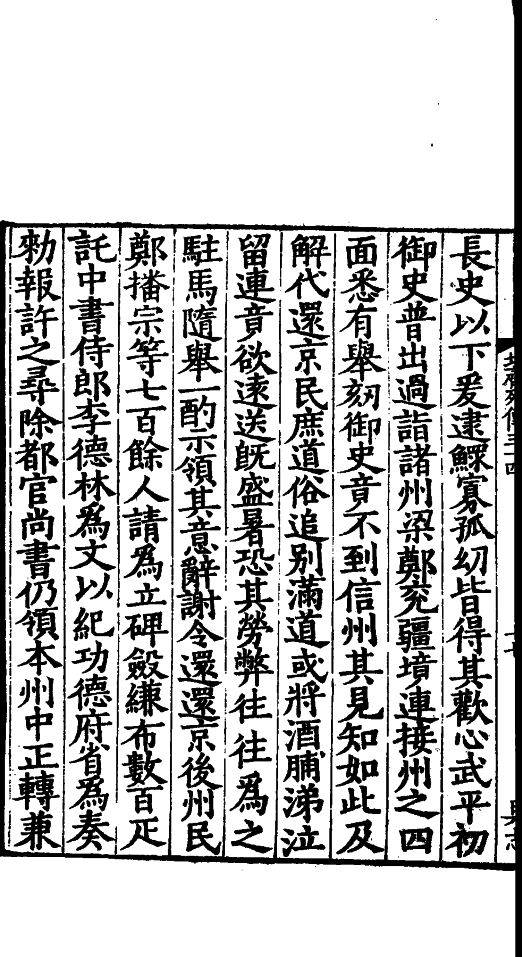 長史以下爰逮鰥寡孤幼皆得其歡心武平初
御史普出過詣諸州梁鄭兖疆境連接州之四
面悉有舉劾御史竟不到信州其見知如此及
解代還京民庶道俗追别滿道或將酒脯涕泣
留連竟欲遠送旣盛暑恐其勞弊往往爲之
駐馬隨舉一酌示領其意辭謝令還還京後州民
鄭播宗等七百餘人請爲立碑斂縑布數百疋
託中書侍郎李德林爲文以紀功德府省爲奏
勑報許之尋除都官尚書仍領本州中正轉兼